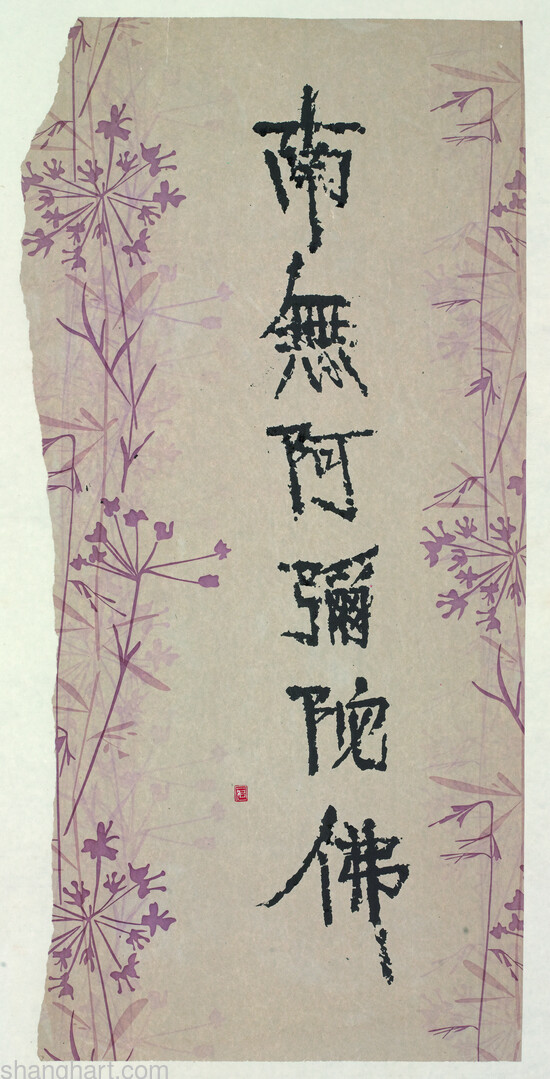 南無阿彌陀佛
shanghart.com